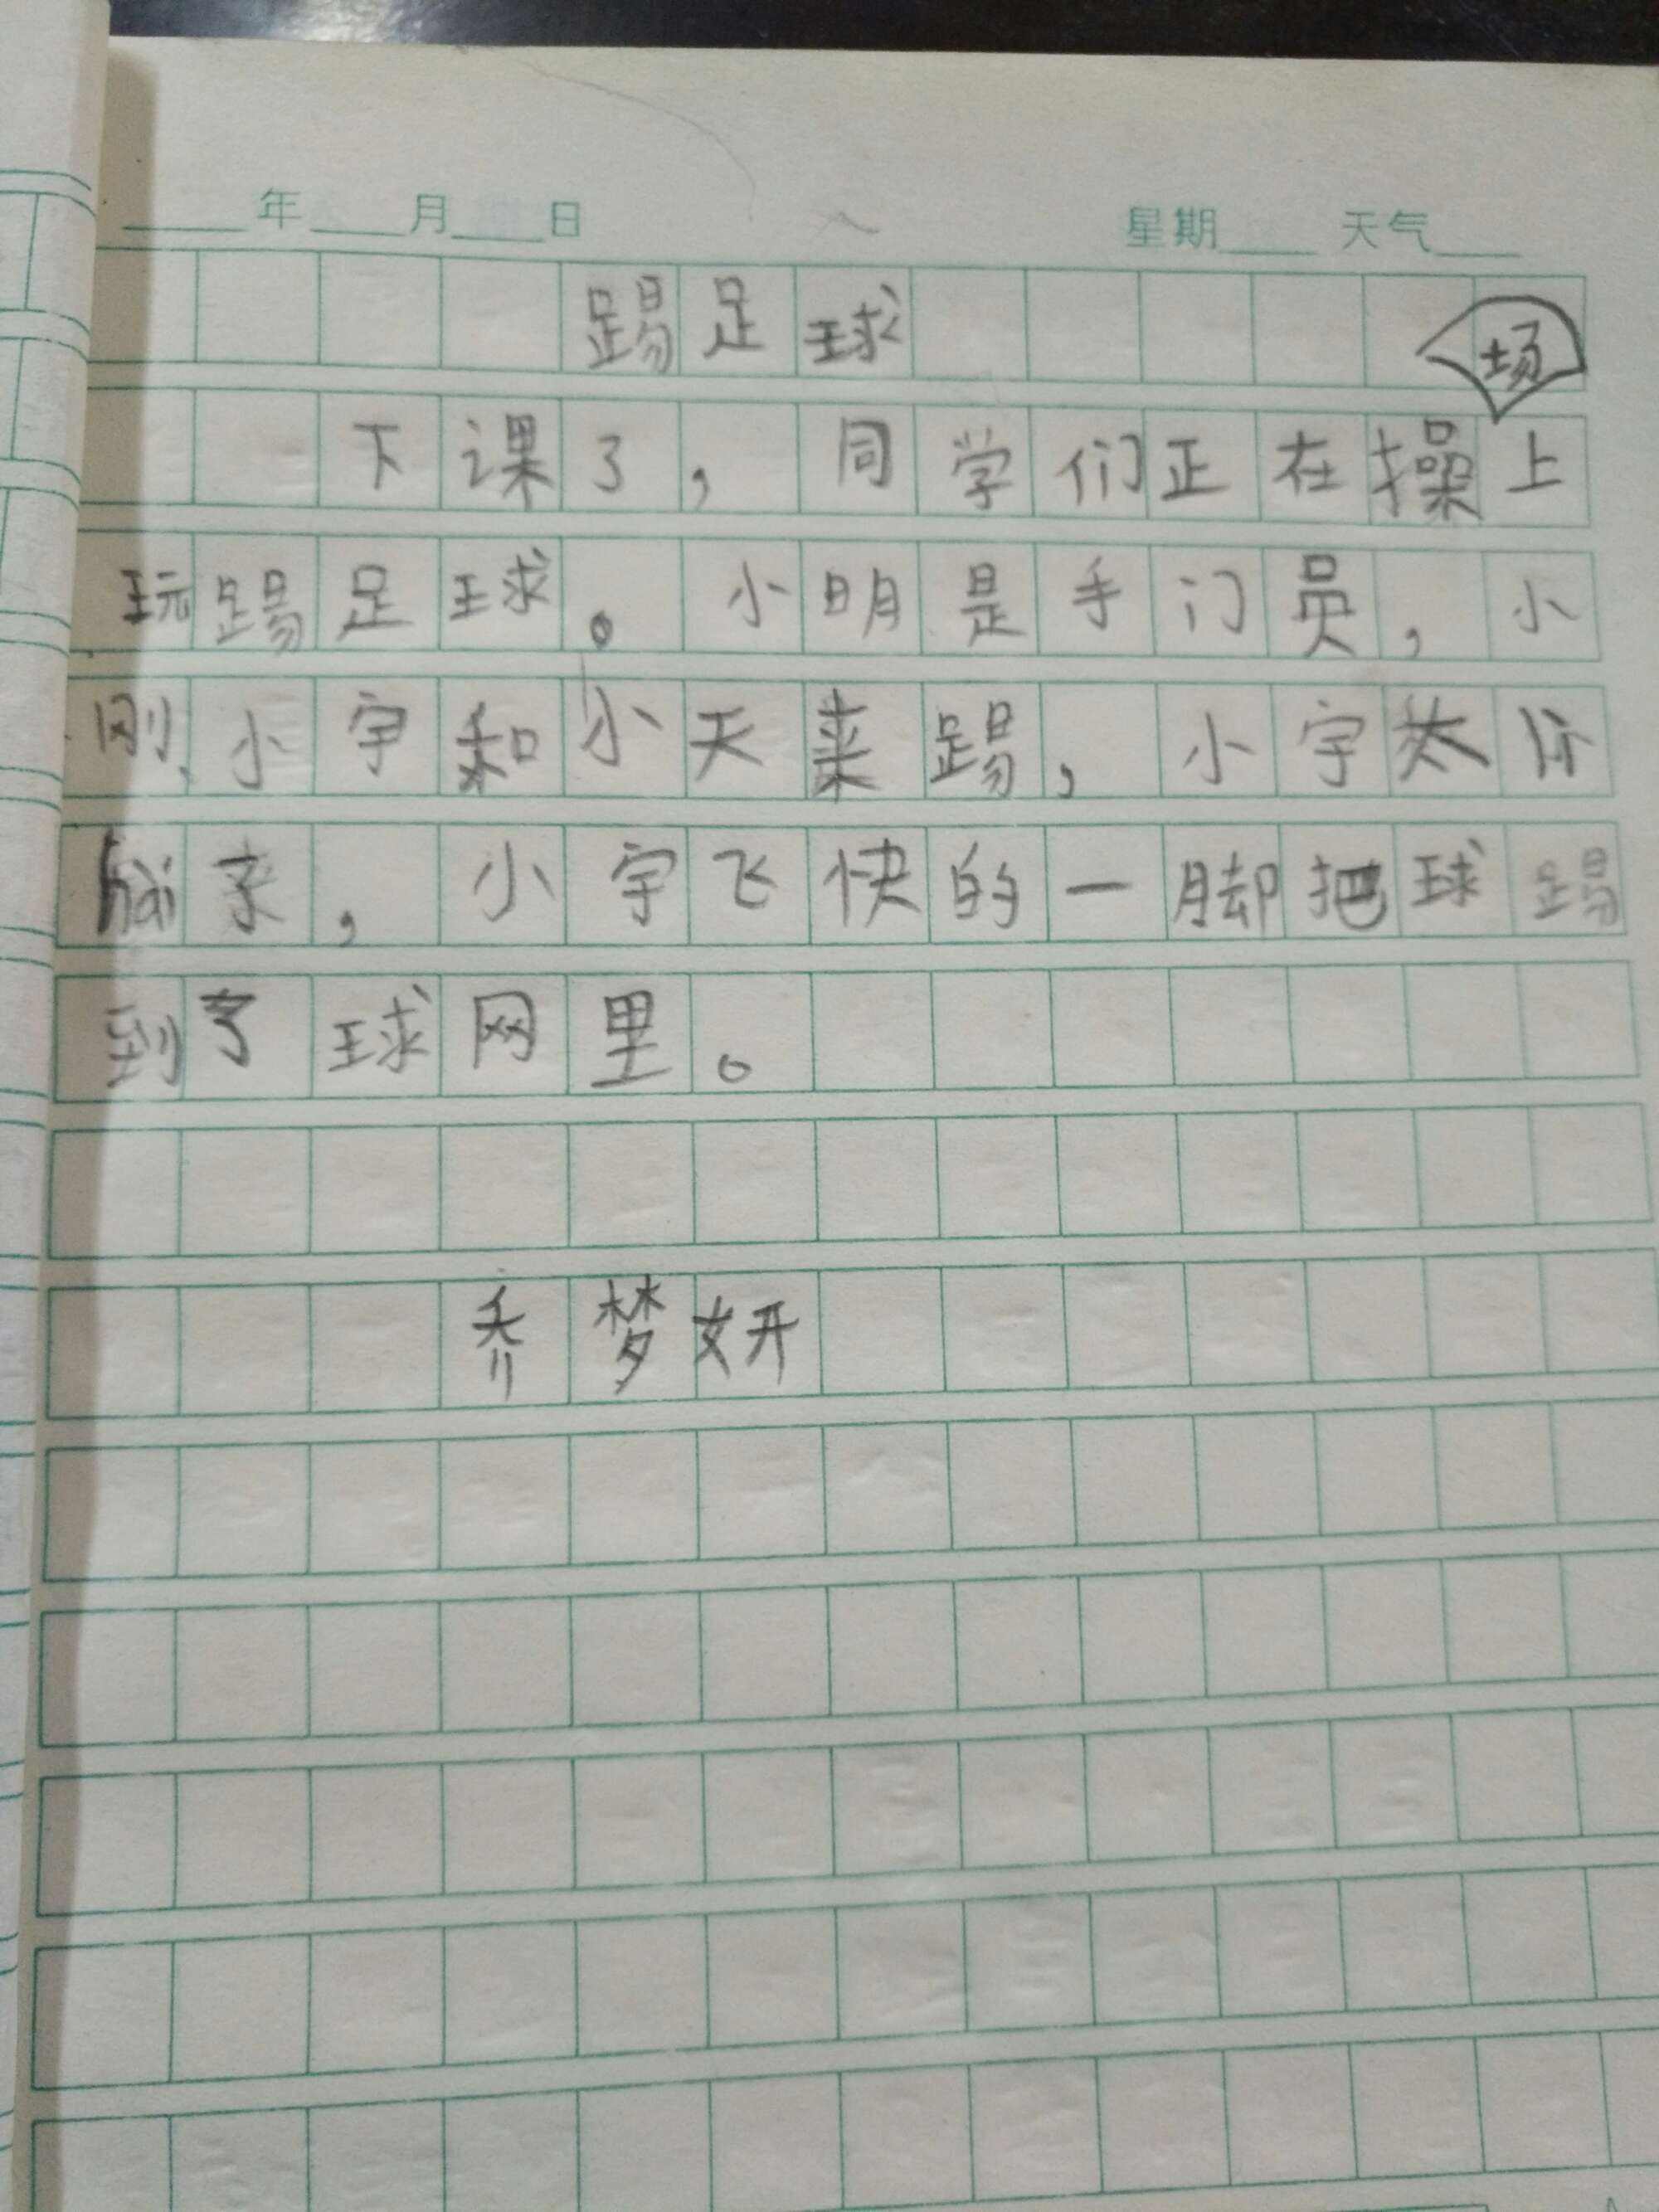 年 月 日 星期 天气
踢足球
场
下课了，同学们正在操上
玩踢足球。小明是手门员，小
刚、小宇和小天来踢，小宇
来，小宇飞快的一脚把球踢
到了球网里。
乔梦妍